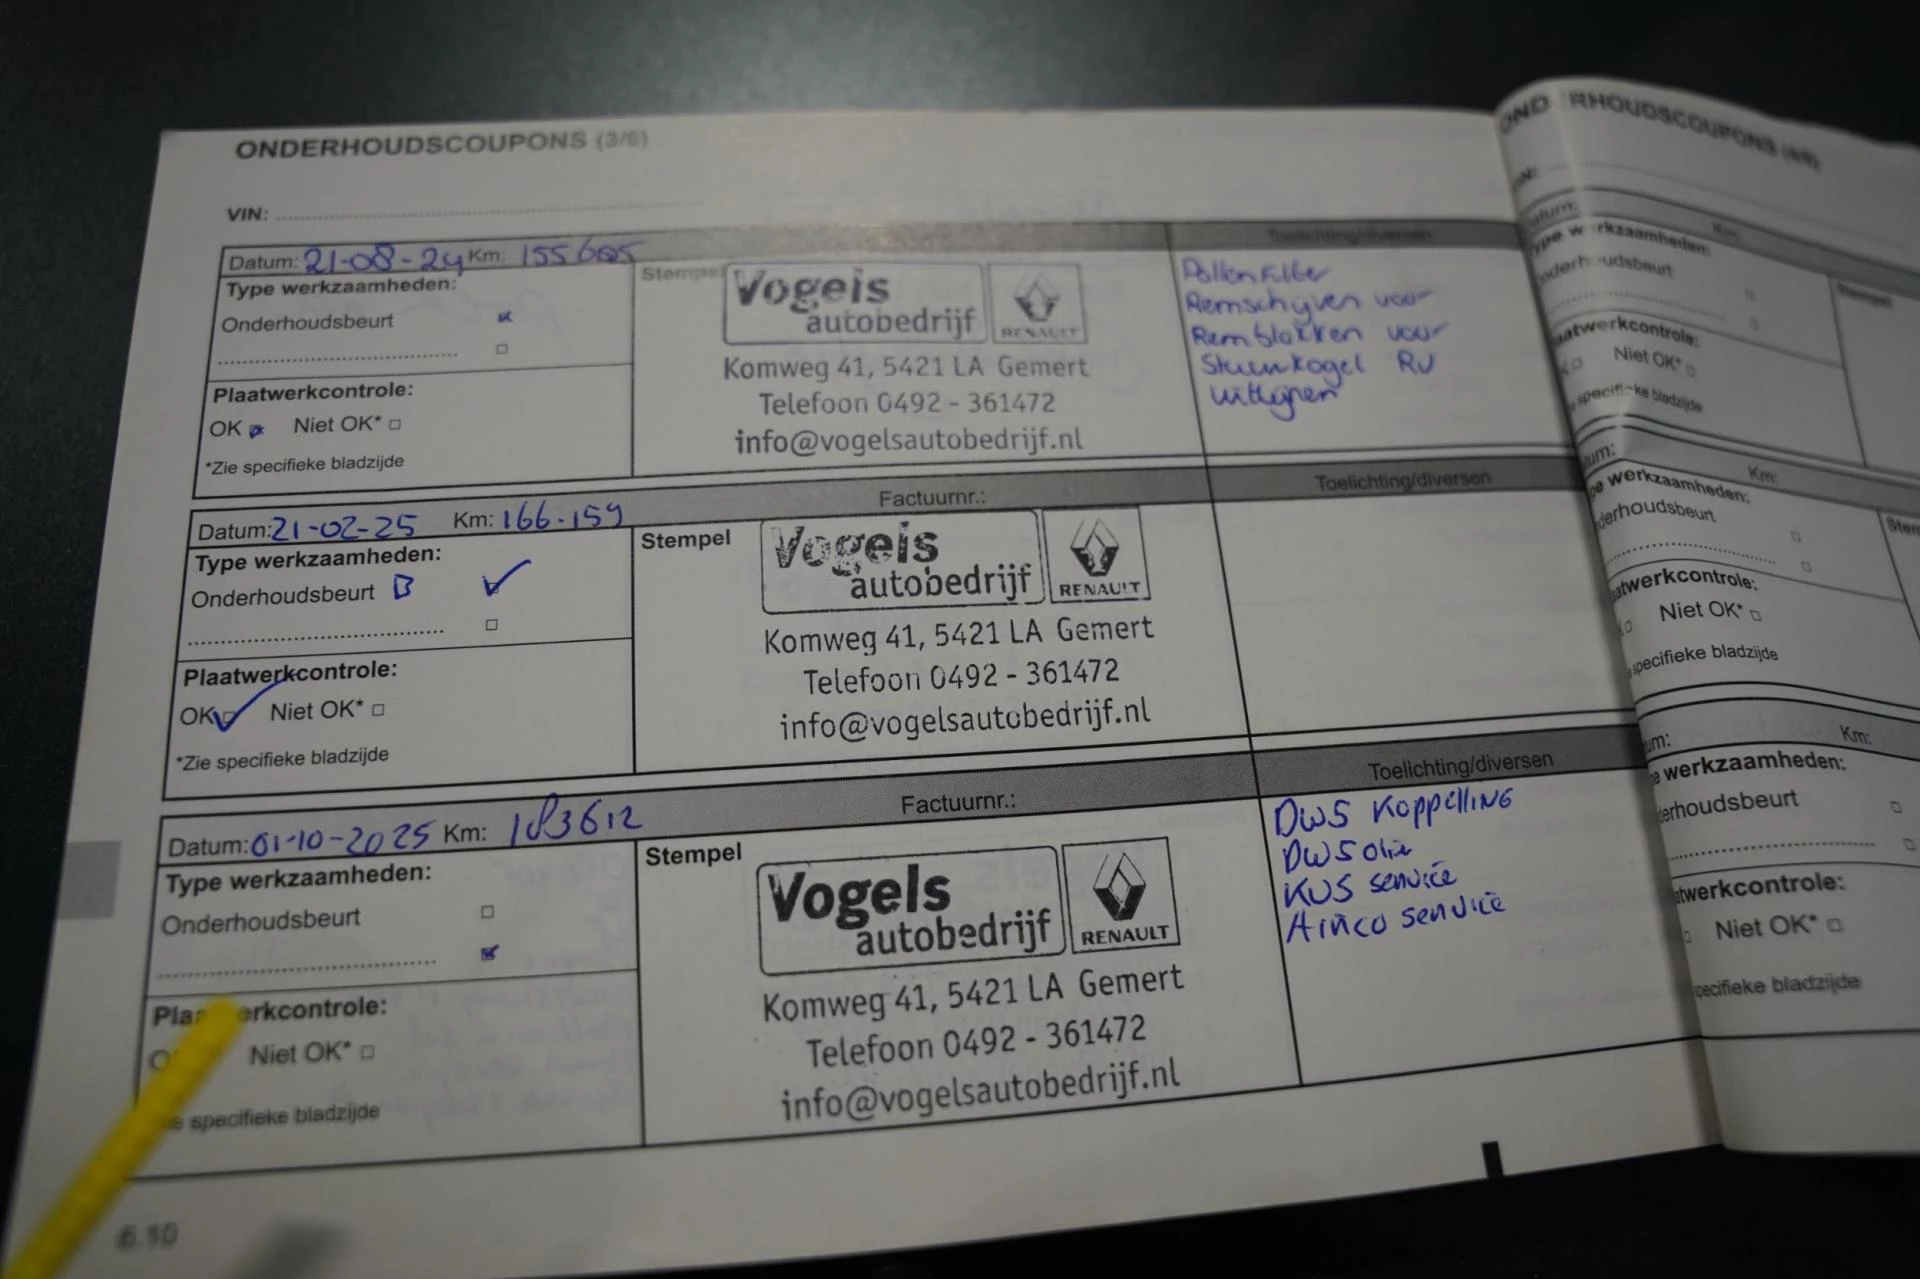 ONDERHOUDSCOUPONS (3/6)
VIN:
Datum: 21-08-24 Km: 155605
Toelichting/diversen
Type werkzaamheden:
Onderhoudsbeurt
Plaatwerkcontrole:
OK Niet OK*
*Zie specifieke bladzijde
Stempel
Vogels
autobedrijf
RENAULT
Komweg 41, 5421 LA Gemert
Telefoon 0492 - 361472
info@vogelsautobedrijf.nl
Pollenfilter
Remschijven voor
Remblokken voor
Stuurkogel RV
uitlijnen
Datum: 21-02-25 Km: 166-159
Factuurnr.:
Toelichting/diversen
Type werkzaamheden:
Onderhoudsbeurt B
Plaatwerkcontrole:
OK Niet OK*
*Zie specifieke bladzijde
Stempel
Vogels
autobedrijf
RENAULT
Komweg 41, 5421 LA Gemert
Telefoon 0492 - 361472
info@vogelsautobedrijf.nl
Datum: 01-10-2025 Km: 183612
Factuurnr.:
Toelichting/diversen
Type werkzaamheden:
Onderhoudsbeurt
Niet OK*
specifieke bladzijde
Stempel
Vogels
autobedrijf
RENAULT
Komweg 41, 5421 LA Gemert
Telefoon 0492 - 361472
info@vogelsautobedrijf.nl
DWS Koppelling
DWS olie
KUS service
Airco service
6.10
Km:
werkzaamheden:
Niet OK*
specifieke bladzijde
Km:
werkzaamheden:
Niet OK*
specifieke bladzijde
Km:
werkzaamheden:
Niet OK*
specifieke bladzijde